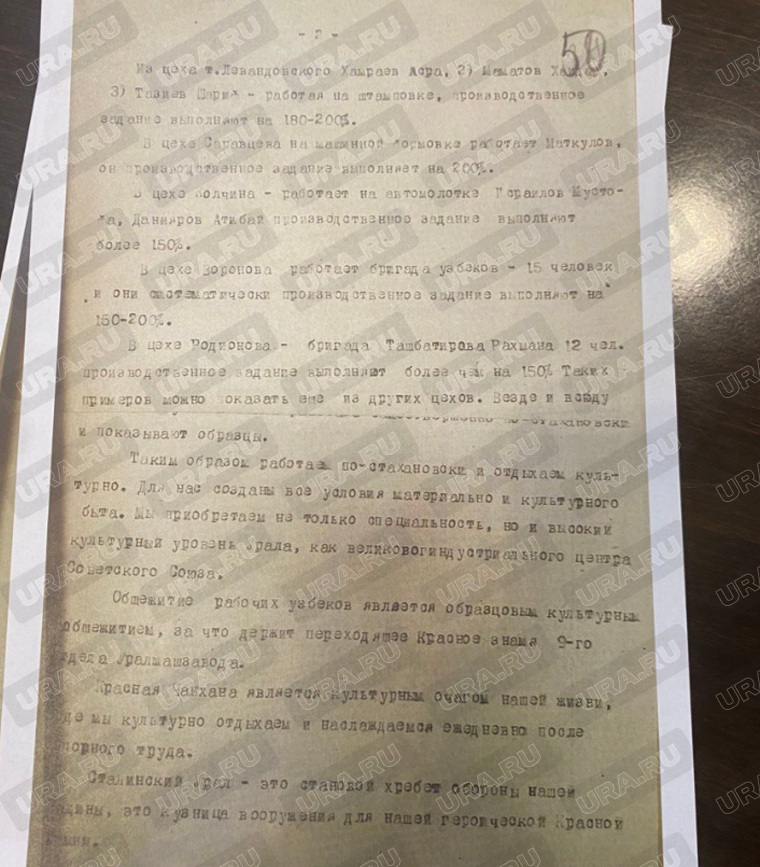 - 2 -
50
Из цеха т.Левандовского Хамраев Асра, 2) Маматов
3) Тазиев - работая на штамповке, производственное
задание выполняют на 180-200%.
В цехе Саравцева на машинной формовке работает Маткулов,
он производственное задание выполняет на 200%.
В цехе Волчина - работает на автомолотке Исраилов Мусто-
фа, Данияров Атибай производственное задание выполняют
более 150%.
В цехе Воронова работает бригада узбеков - 15 человек
и они систематически производственное задание выполняют на
150-200%.
В цехе Родионова - бригада Ташбатирова Рахмана 12 чел.
производственное задание выполняют более чем на 150% Таких
примеров можно показать еще из других цехов. Везде и всюду
по-стахановски
и показывают образцы.
Таким образом работаем по-стахановски и отдыхаем куль-
турно. Для нас созданы все условия материально и культурного
быта. Мы приобретаем не только специальность, но и высокий
культурный уровень Урала, как великовогиндустриального центра
Советского Союза.
Общежитие рабочих узбеков является образцовым культурным
общежитием, за что держит переходящее Красное знамя 9-го
тдела Уралмашзавода.
Красная Чайхана является культурным очагом нашей жизни,
где мы культурно отдыхаем и наслаждаемся ежедневно после
порного труда.
Сталинский Урал - это становой хребет обороны нашей
одины, это кузница вооружения для нашей героической Красной
рмии.
URA.RU